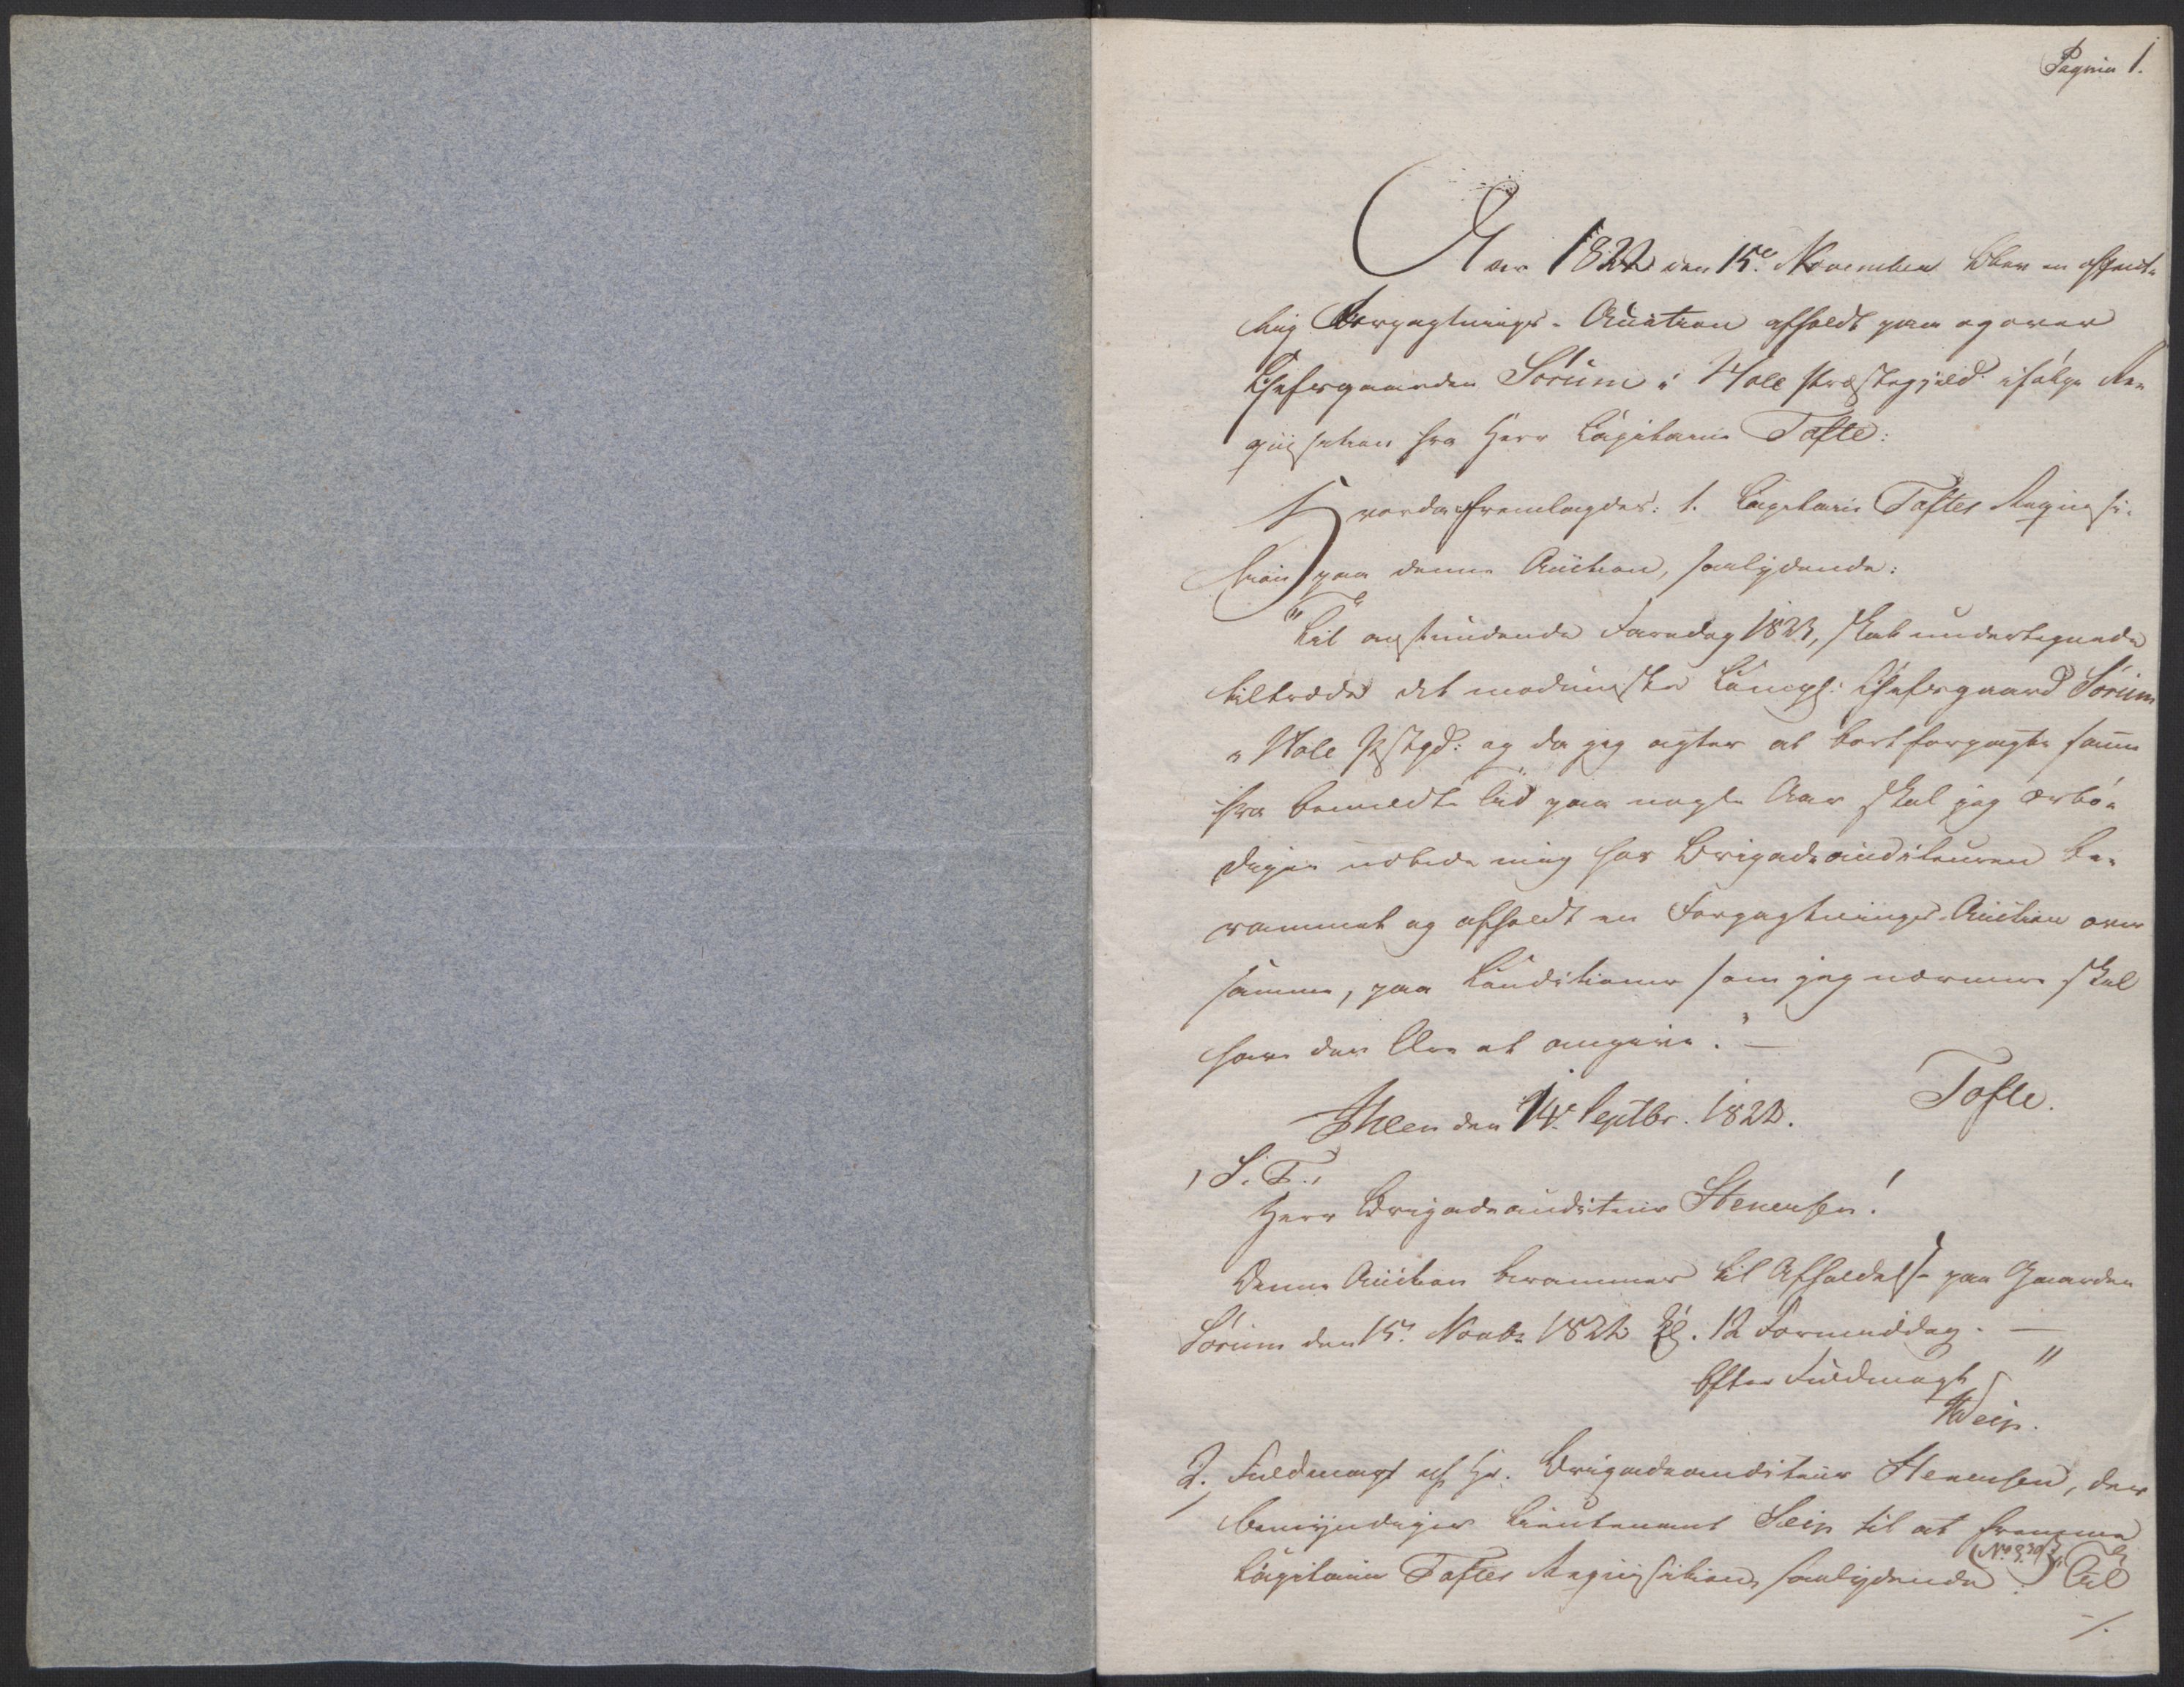 Pagina 1.
Aar 1822 den 15.e November blev en offent-
lig Forpagtnings-Auction afholdt paa og over
Chefsgaarden Sörum i Hole Præstegjeld ifølge Re-
quisition fra Herr Capitain Tofte:
Hvorda fremlagdes: 1. Capitain Toftes Requisi-
tion paa denne Auction, saalydende:
"Til anstundende Faredag 1823, skal undertegnede
tiltræde det modumske Comps: Chefsgaard Sörum
i Hole Pstgd: og da jeg agter at bortforpagte samme
fra bemeldte Tid paa nogle Aar skal jeg ærbö-
digen udbede mig hos Brigadeauditeuren be-
rammet og afholdt en Forpagtnings-Auction over
samme, paa Conditioner som jeg nærmere skal
have den Ære at angive." —
Hleen den 14.e Septbr. 1822. Tofte.
S. T.
Herr Brigadeauditeur Stenersen!
Denne Auction berammes til Afholdelse paa Gaarden
Sörum den 15. Novbr 1822 Kl. 12 Formiddag. —
Efter Fuldmagt "
Seip.
2. Fuldmagt af Hr. Brigadeauditeur Stenersen, der
bemyndiger Lieutenant Seip til at fremme
Capitain Toftes Requisition, saalydende: (No 339) "Til
/.